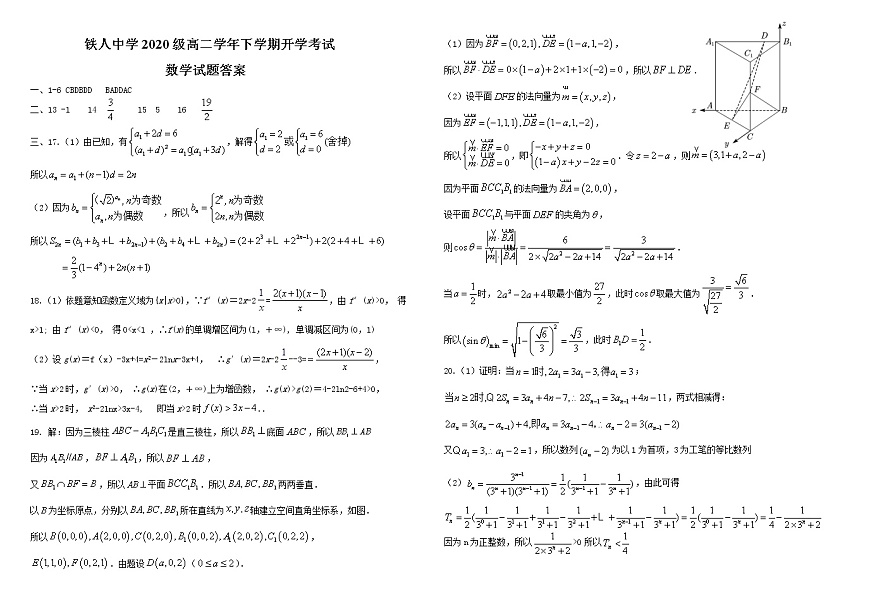 铁人中学 2020 级高二学年下学期开学考试
数学试题答案
一、1-6 CBDBDD BADDAC
二、13 -1 14 3/4 15 5 16 19/2
三、17.（1）由已知，有{a₁+2d=6 (a₁+d)²=a₁g(a₁+3d)，解得{a₁=2 d=2或{a₁=6 d=0(舍掉)
所以aₙ=a₁+(n-1)d=2n
（2）因为bₙ={(√2)^aₙ,n为奇数 aₙ,n为偶数，所以bₙ={2ⁿ,n为奇数 2n,n为偶数
所以S₂ₙ=(b₁+b₃+L+b₂ₙ₋₁)+(b₂+b₄+L+b₂ₙ)=(2+2³+L+2²ⁿ⁻¹)+2(2+4+L+6)
=2/3(1-4ⁿ)+2n(n+1)
18.（1）依题意知函数定义域为{x|x>0}，∵f′(x)=2x-2 1/x=2(x+1)(x-1)/x，由 f′(x)>0， 得
x>1；由 f′(x)<0， 得0<x<1 ，∴f(x)的单调增区间为(1，+∞)，单调减区间为(0，1)
（2）设 g(x)=f（x）-3x+4=x²-2lnx-3x+4， ∴g′(x)=2x-2 1/x--3==(2x+1)(x-2)/x，
∵当x>2时，g′(x)>0， ∴g(x)在(2，+∞)上为增函数， ∴g(x)>g(2)=4-2ln2-6+4>0，
∴当x>2时， x²-2lnx>3x-4， 即当x>2时f(x)>3x-4．.
19. 解：因为三棱柱ABC-A₁B₁C₁是直三棱柱，所以BB₁⊥底面ABC，所以BB₁⊥AB
因为A₁B₁//AB，BF⊥A₁B₁，所以BF⊥AB，
又BB₁∩BF=B，所以AB⊥平面BCC₁B₁．所以BA,BC,BB₁两两垂直．
以B为坐标原点，分别以BA,BC,BB₁所在直线为x,y,z轴建立空间直角坐标系，如图．
所以B(0,0,0),A(2,0,0),C(0,2,0),B₁(0,0,2),A₁(2,0,2),C₁(0,2,2)，
E(1,1,0),F(0,2,1)．由题设D(a,0,2)（0≤a≤2）．
（1）因为BF=(0,2,1),DE=(1-a,1,-2)，
所以BF·DE=0×(1-a)+2×1+1×(-2)=0，所以BF⊥DE．
（2）设平面DFE的法向量为m=(x,y,z)，
因为EF=(-1,1,1),DE=(1-a,1,-2)，
所以{m·EF=0 m·DE=0，即{-x+y+z=0 (1-a)x+y-2z=0．令z=2-a，则m=(3,1+a,2-a)
因为平面BCC₁B₁的法向量为BA=(2,0,0)，
设平面BCC₁B₁与平面DEF的夹角为θ，
则cosθ=|m·BA|/|m|·|BA|=6/(2×√(2a²-2a+14))=3/√(2a²-2a+14)．
当a=1/2时，2a²-2a+4取最小值为27/2，此时cosθ取最大值为3/√(27/2)=√6/3．
所以(sinθ)min=√(1-(√6/3)²)=√3/3，此时B₁D=1/2．
20.（1）证明：当n=1时,2a₁=3a₁-3,得a₁=3；
当n≥2时,Q 2Sₙ=3aₙ+4n-7,∴2Sₙ₋₁=3aₙ₋₁+4n-11，两式相减得：
2aₙ=3(aₙ-aₙ₋₁)+4,即aₙ=3aₙ₋₁-4.∴aₙ-2=3(aₙ₋₁-2)
又Q a₁=3,∴a₁-2=1，所以数列(aₙ-2)为以1为首项，3为工笔的等比数列
（2）bₙ=3ⁿ⁻¹/((3ⁿ⁻¹+1)(3ⁿ+1))=1/2(1/(3ⁿ⁻¹+1)-1/(3ⁿ+1))，由此可得
Tₙ=1/2(1/(3⁰+1)-1/(3¹+1)+1/(3¹+1)-1/(3²+1)+L+1/(3ⁿ⁻¹+1)-1/(3ⁿ+1))=1/2(1/(3⁰+1)-1/(3ⁿ+1))=1/4-1/(2×3ⁿ+2)
因为n为正整数，所以1/(2×3ⁿ+2)>0 所以Tₙ<1/4
z
D
A₁
B₁
C₁
F
A
B
x
E
C
y